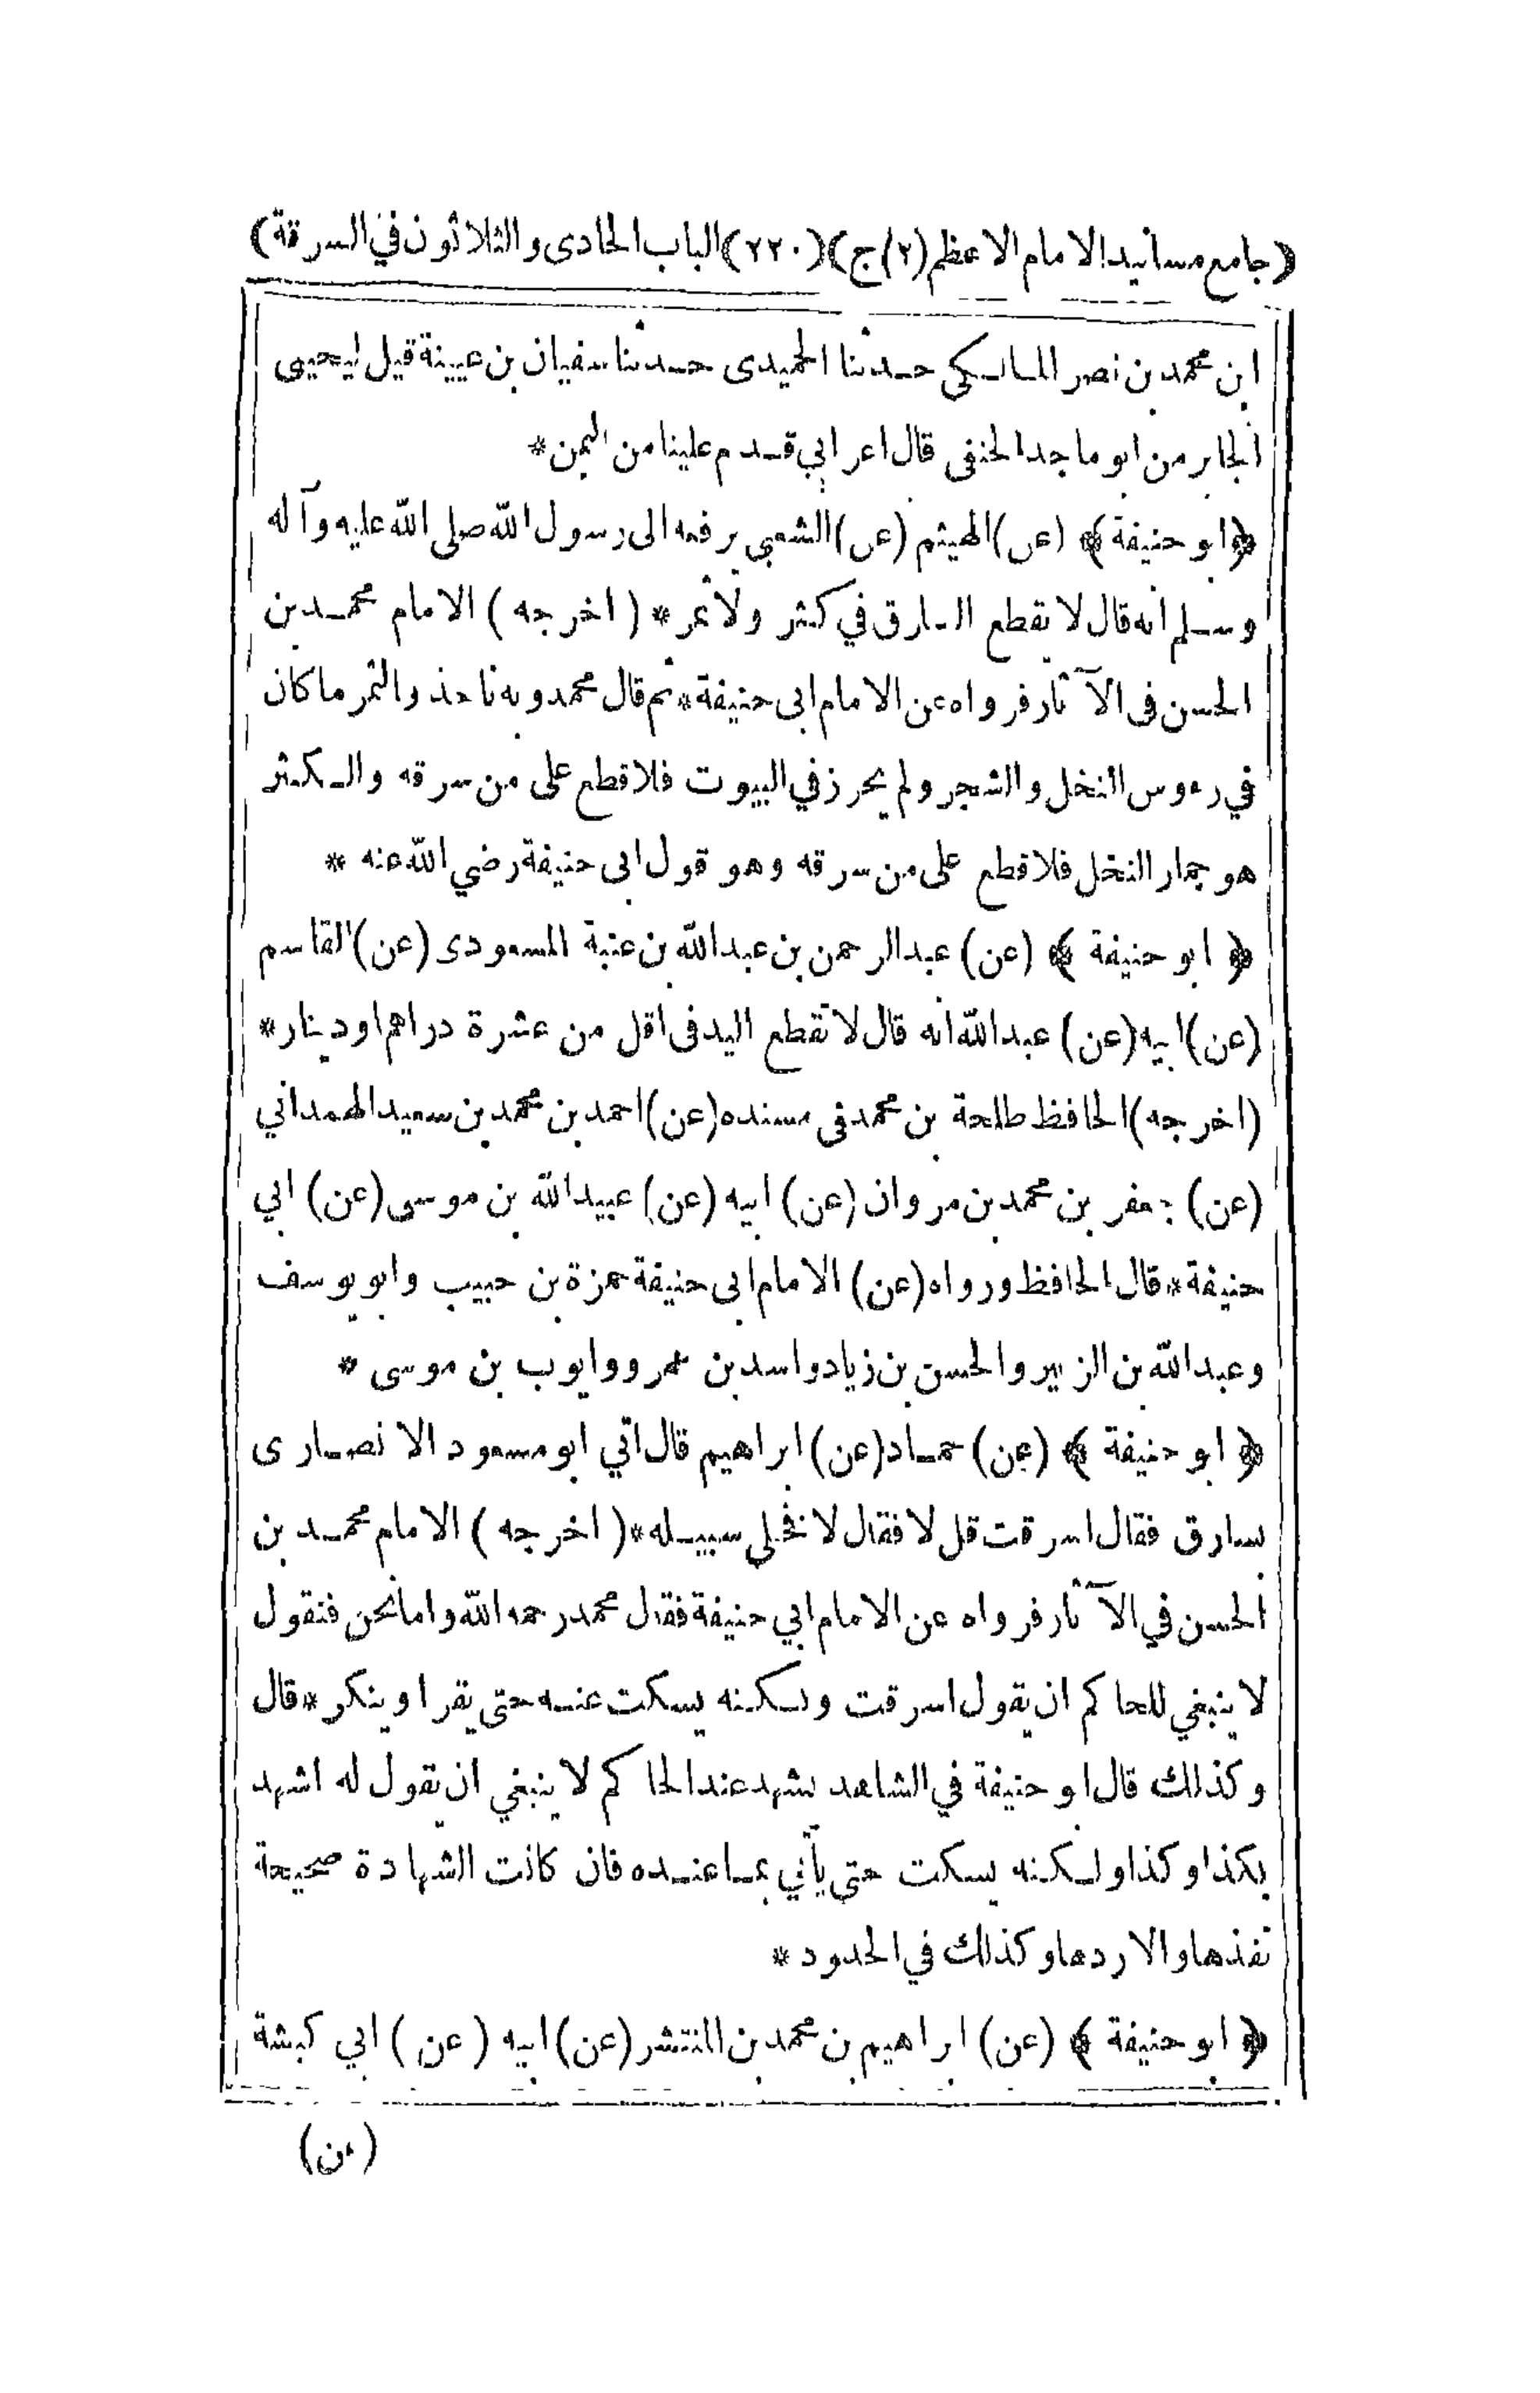 (جامع مسانيد الامام الاعظم (٢) ج) (٢٢٠) (الباب الحادى والثلاثون في السرقة)
ابن محمد بن نصر المالكي حدثنا الحميدى حدثنا سفيان بن عيينة قيل ليحيى
الجابر من ابو ماجد الحنفى قال اعرابي قدم علينا من اليمن *
﴿ ابو حنيفة ﴾ (عن) الهيثم (عن) الشعبي يرفعه الى رسول الله صلى الله عليه وآله
وسلم انه قال لا يقطع السارق في كثر ولا ثمر * (اخرجه) الامام محمد بن
الحسن فى الآثار فرواه عن الامام ابى حنيفة * ثم قال محمد وبه نأخذ والثمر ما كان
في رءوس النخل والشجر ولم يحرز في البيوت فلا قطع على من سرقه والكثر
هو جمار النخل فلا قطع على من سرقه وهو قول ابى حنيفة رضي الله عنه *
﴿ ابو حنيفة ﴾ (عن) عبد الرحمن بن عبد الله بن عتبة المسعودى (عن) القاسم
(عن) ابيه (عن) عبد الله انه قال لا تقطع اليد فى اقل من عشرة دراهم او دينار *
(اخرجه) الحافظ طلحة بن محمد فى مسنده (عن) احمد بن محمد بن سعيد الهمداني
(عن) جعفر بن محمد بن مروان (عن) ابيه (عن) عبيد الله بن موسى (عن) ابي
حنيفة * قال الحافظ ورواه (عن) الامام ابى حنيفة حمزة بن حبيب وابو يوسف
وعبد الله بن الزبير والحسن بن زياد واسد بن عمرو وايوب بن موسى *
﴿ ابو حنيفة ﴾ (عن) حماد (عن) ابراهيم قال اتي ابو مسعود الانصارى
بسارق فقال اسرقت قل لا فقال لا فخلى سبيله * (اخرجه) الامام محمد بن
الحسن في الآثار فرواه عن الامام ابي حنيفة فقال محمد رحمه الله واما نحن فنقول
لا ينبغي للحاكم ان يقول اسرقت ولكنه يسكت عنه حتى يقر او ينكر * قال
وكذلك قال ابو حنيفة في الشاهد يشهد عند الحاكم لا ينبغي ان يقول له اشهد
بكذا وكذا ولكنه يسكت حتى يأتي بما عنده فان كانت الشهادة صحيحة
نفذها والا ردها وكذلك في الحدود *
﴿ ابو حنيفة ﴾ (عن) ابراهيم بن محمد بن المنتشر (عن) ابيه (عن) ابي كبشة
(عن)